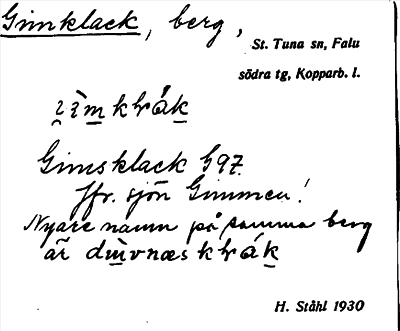 Gimklack, berg,
St. Tuna sn, Falu
södra tg, Kopparb. l.
Gimsklack G 97.
Jfr. sjön Gimmen!
Nyare namn på samma berg
är
H. Ståhl 1930